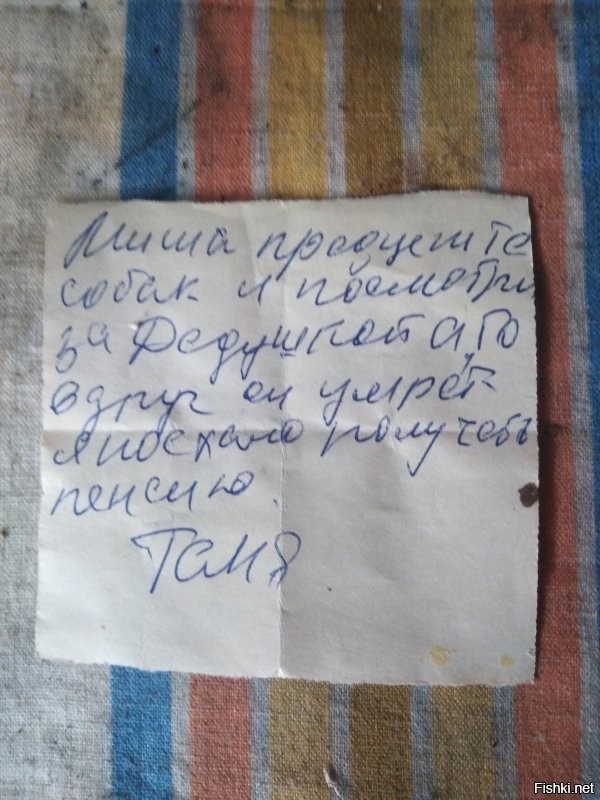 Миша
собак и посмотри
за Дедушкой а,то
вдруг он умрёт
я поехала получать
пенсию.
Таня
Fishki.net